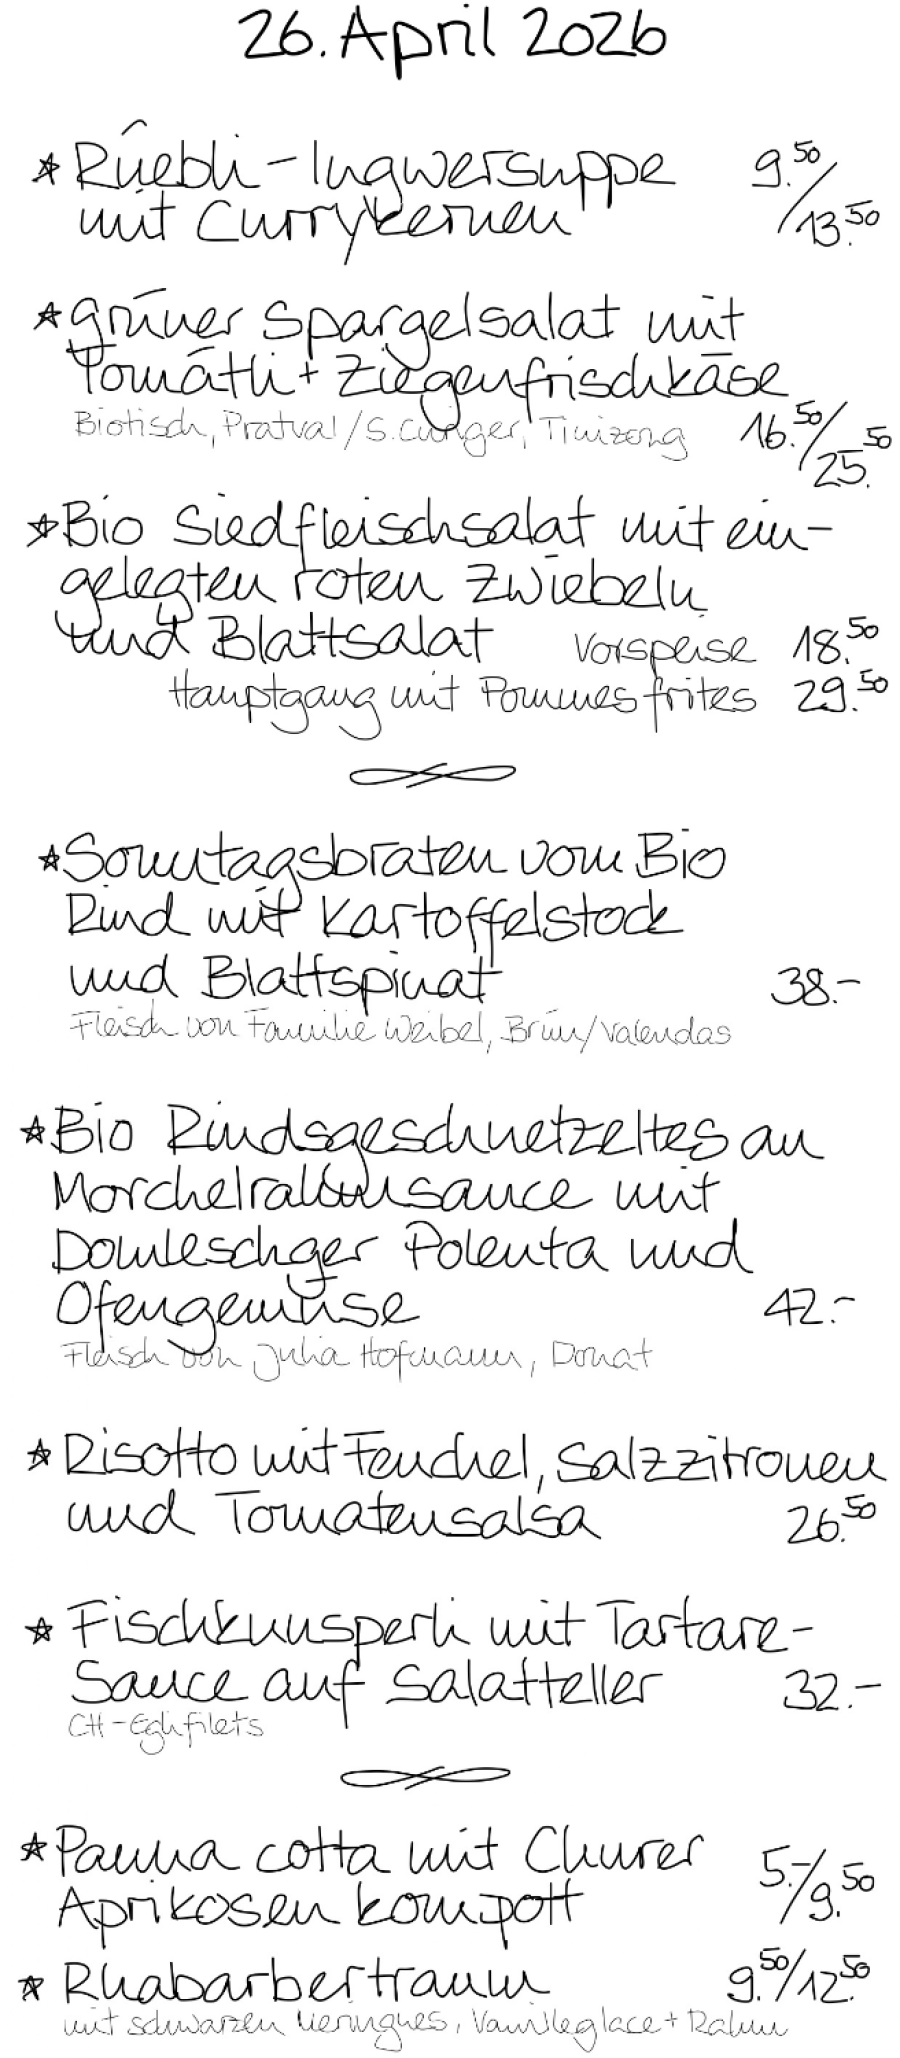 26. April 2026
* Rüebli-Ingwersuppe 9.50/
mit Currykernen 13.50
* grüner Spargelsalat mit
Tomätli + Ziegenfrischkäse
Biotisch, Pratval / S. Cunger, Tinizong 16.50/25.50
* Bio Siedfleischsalat mit ein-
gelegten roten Zwiebeln
und Blattsalat Vorspeise 18.50
Hauptgang mit Pommes frites 29.50
* Sonntagsbraten vom Bio
Rind mit Kartoffelstock
und Blattspinat 38.-
Fleisch von Familie Weibel, Brün/Valendas
* Bio Rindsgeschnetzeltes an
Morchelrahmsauce mit
Domleschger Polenta und
Ofengemüse 42.-
Fleisch von Julia Hofmann, Donat
* Risotto mit Fenchel, Salzzitronen
und Tomatensalsa 26.50
* Fischknusperli mit Tartare-
Sauce auf Salatteller 32.-
CH-Eglifilets
* Panna cotta mit Churer
Aprikosenkompott 5.-/9.50
* Rhabarbertraum 9.50/12.50
mit schwarzen Meringues, Vanilleglace + Rahm